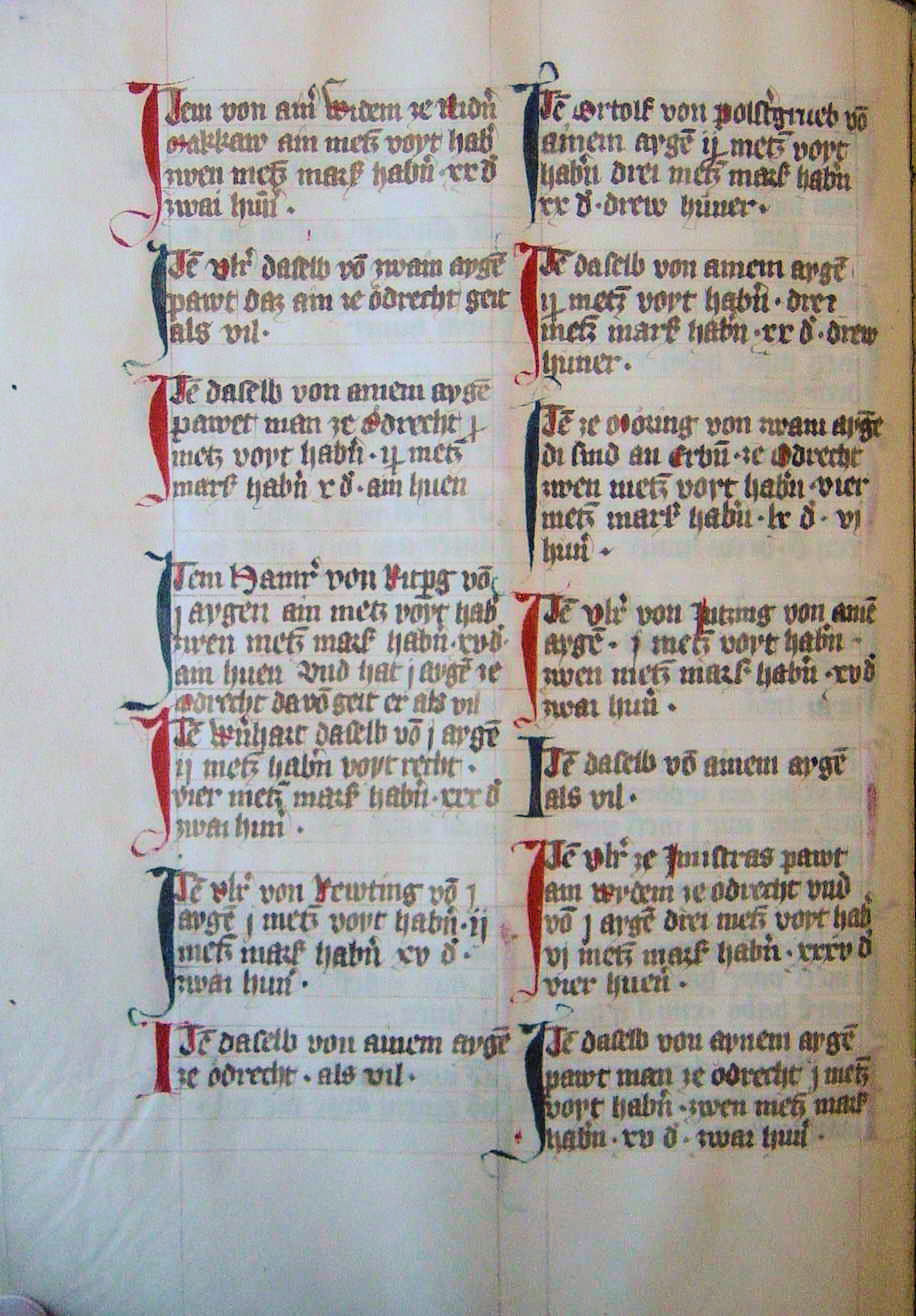 Item von aim Widem ze Nidn̄
Hakkaw ain metz voyt hab̄
zwen metz mark habn̄ · xx d
zwai hun̄ ·
Itē Vlr̄ daselb vō zwain aygē
pawt daz ain ze odrecht geit
als vil ·
Itē daselb von ainem aygē
pawet man ze Odrecht
metz voyt habn̄ · metz
mark habn̄ x d · ain huen
Item Hainr̄ von vō
j aygen ain metz voyt hab̄
zwen metz mark habn̄ · xv d ·
ain huen Vnd hat j aygē ze
Odrecht da vō geit er als vil
Itē Wn̄hart daselb vō j aygē
ij metz habn̄ voyt recht ·
vier metz mark habn̄ · xxx d
zwai hun̄ ·
Itē Vlr̄ von Rewting vō j
aygē j metz voyt habn̄ · ij
metz mark habn̄ xv d ·
zwai hun̄ ·
Itē daselb von ainem aygē
ze odrecht · als vil ·
Itē Ortolf von Polstgrueb vō
ainem aygē metz voyt
habn̄ drei metz mark habn̄
xx d · drew hůner ·
Itē daselb von ainem aygē
metz voyt habn̄ · drei
metz mark habn̄ · xx d · drew
huner ·
Itē ze Moring von zwain aygē
di sind an Erbn̄ · ze Odrecht
zwen metz voyt habn̄ · vier
metz mark habn̄ · lx d · vj
hun̄ ·
Itē Vlr̄ von Jutzing von ainē
aygē · j metz voyt habn̄ ·
zwen metz mark habn̄ · xv d
zwai hun̄ ·
Itē daselb vō ainem aygē
als vil ·
Itē Vlr̄ ze Jmistras pawt
ain Wydem ze odrecht vnd
vō j aygē drei metz voyt hab̄
vj metz mark habn̄ · xxxv d
vier huen̄ ·
Itē daselb von aynem aygē
pawt man ze odrecht j metz
voyt habn̄ · zwen metz mark
habn̄ · xv d · zwai hun̄ ·